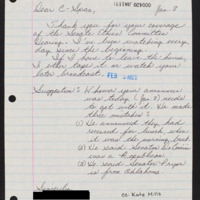 Dear C-Span, Jan. 8
Thank you for your coverage
of the Senate Ethics Committee
Hearings. I've been watching every
day from the beginning.
If I have to leave the house,
I often tape it or watch your
late broadcast. FEB
Suggestion: I honor your announcer
was today (Jan 8) needs
to get with it. He made
three mistakes:
1) He announced they had
recessed for lunch when
it was the morning break
(2) He said Senator
was a Republican
(3) He said Senator Pryor
is from Oklahoma.
Sincerely,
cc: Kate Mills